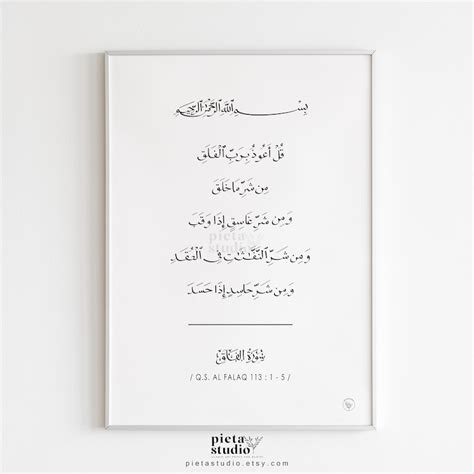 pieta
studio
بِسْمِ ٱللَّهِ ٱلرَّحْمَٰنِ ٱلرَّحِيمِ
قُلْ أَعُوذُ بِرَبِّ ٱلْفَلَقِ
مِن شَرِّ مَا خَلَقَ
وَمِن شَرِّ غَاسِقٍ إِذَا وَقَبَ
pieta
studio
وَمِن شَرِّ ٱلنَّفَّٰثَٰتِ فِى ٱلْعُقَدِ
وَمِن شَرِّ حَاسِدٍ إِذَا حَسَدَ
سُورَةُ الفَلَق
/ Q.S. AL FALAQ 113 : 1 - 5 /
pieta
studio
pietastudio.etsy.com